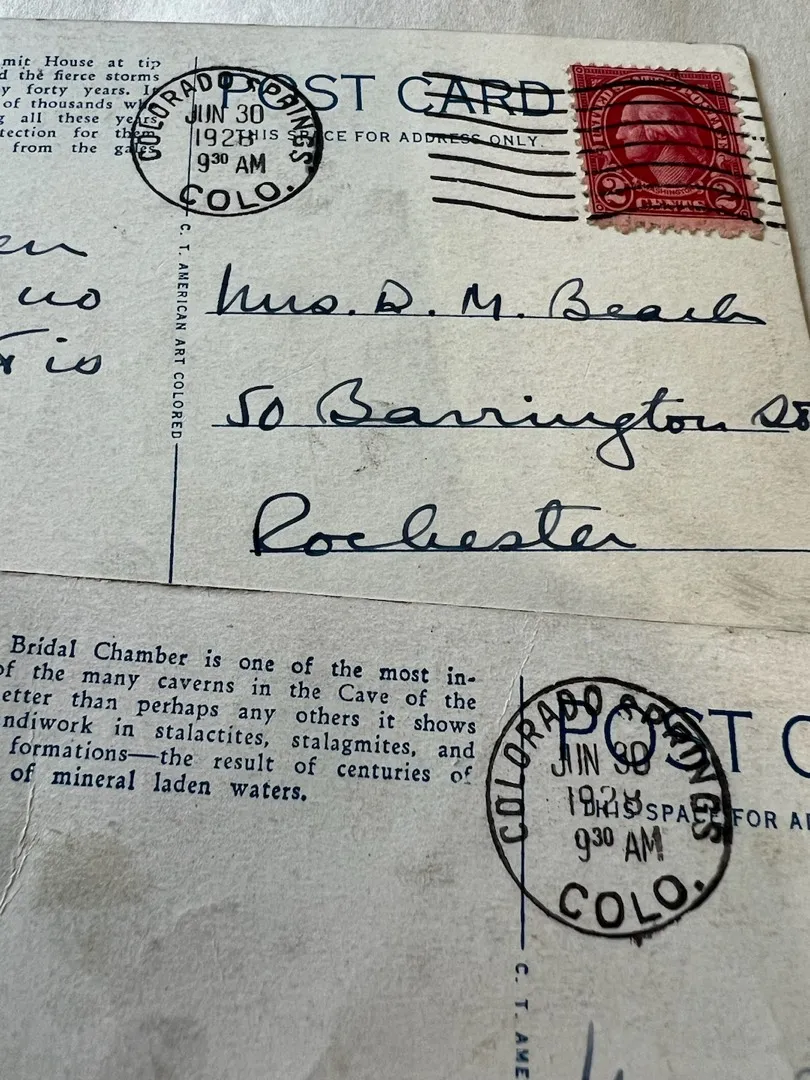 mit House at tip
d the fierce storms
y forty years. In
of thousands who
g all these years
tection for them
from the gales
COLORADO SPRINGS
JUN 30
1928
9³⁰ AM
COLO.
POST CARD
THIS SPACE FOR ADDRESS ONLY.
UNITED STATES POSTAGE
WASHINGTON
2 CENTS 2
C. T. AMERICAN ART COLORED
en
no
is
Mrs. D. M. Beach
50 Barrington St
Rochester
Bridal Chamber is one of the most in-
of the many caverns in the Cave of the
etter than perhaps any others it shows
ndiwork in stalactites, stalagmites, and
formations—the result of centuries of
of mineral laden waters.
COLORADO SPRINGS
JUN 30
1928
9³⁰ AM
COLO.
POST C
THIS SPACE FOR A
C. T. AME